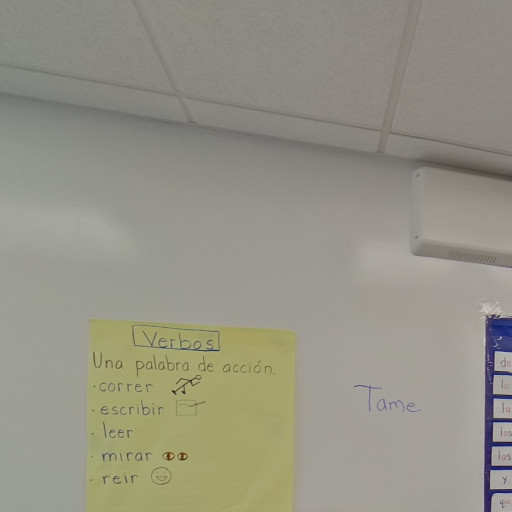 Verbos
Una palabra de acción.
· correr
· escribir
· leer
· mirar
· reir
Tame
de
lo
la
los
las
y